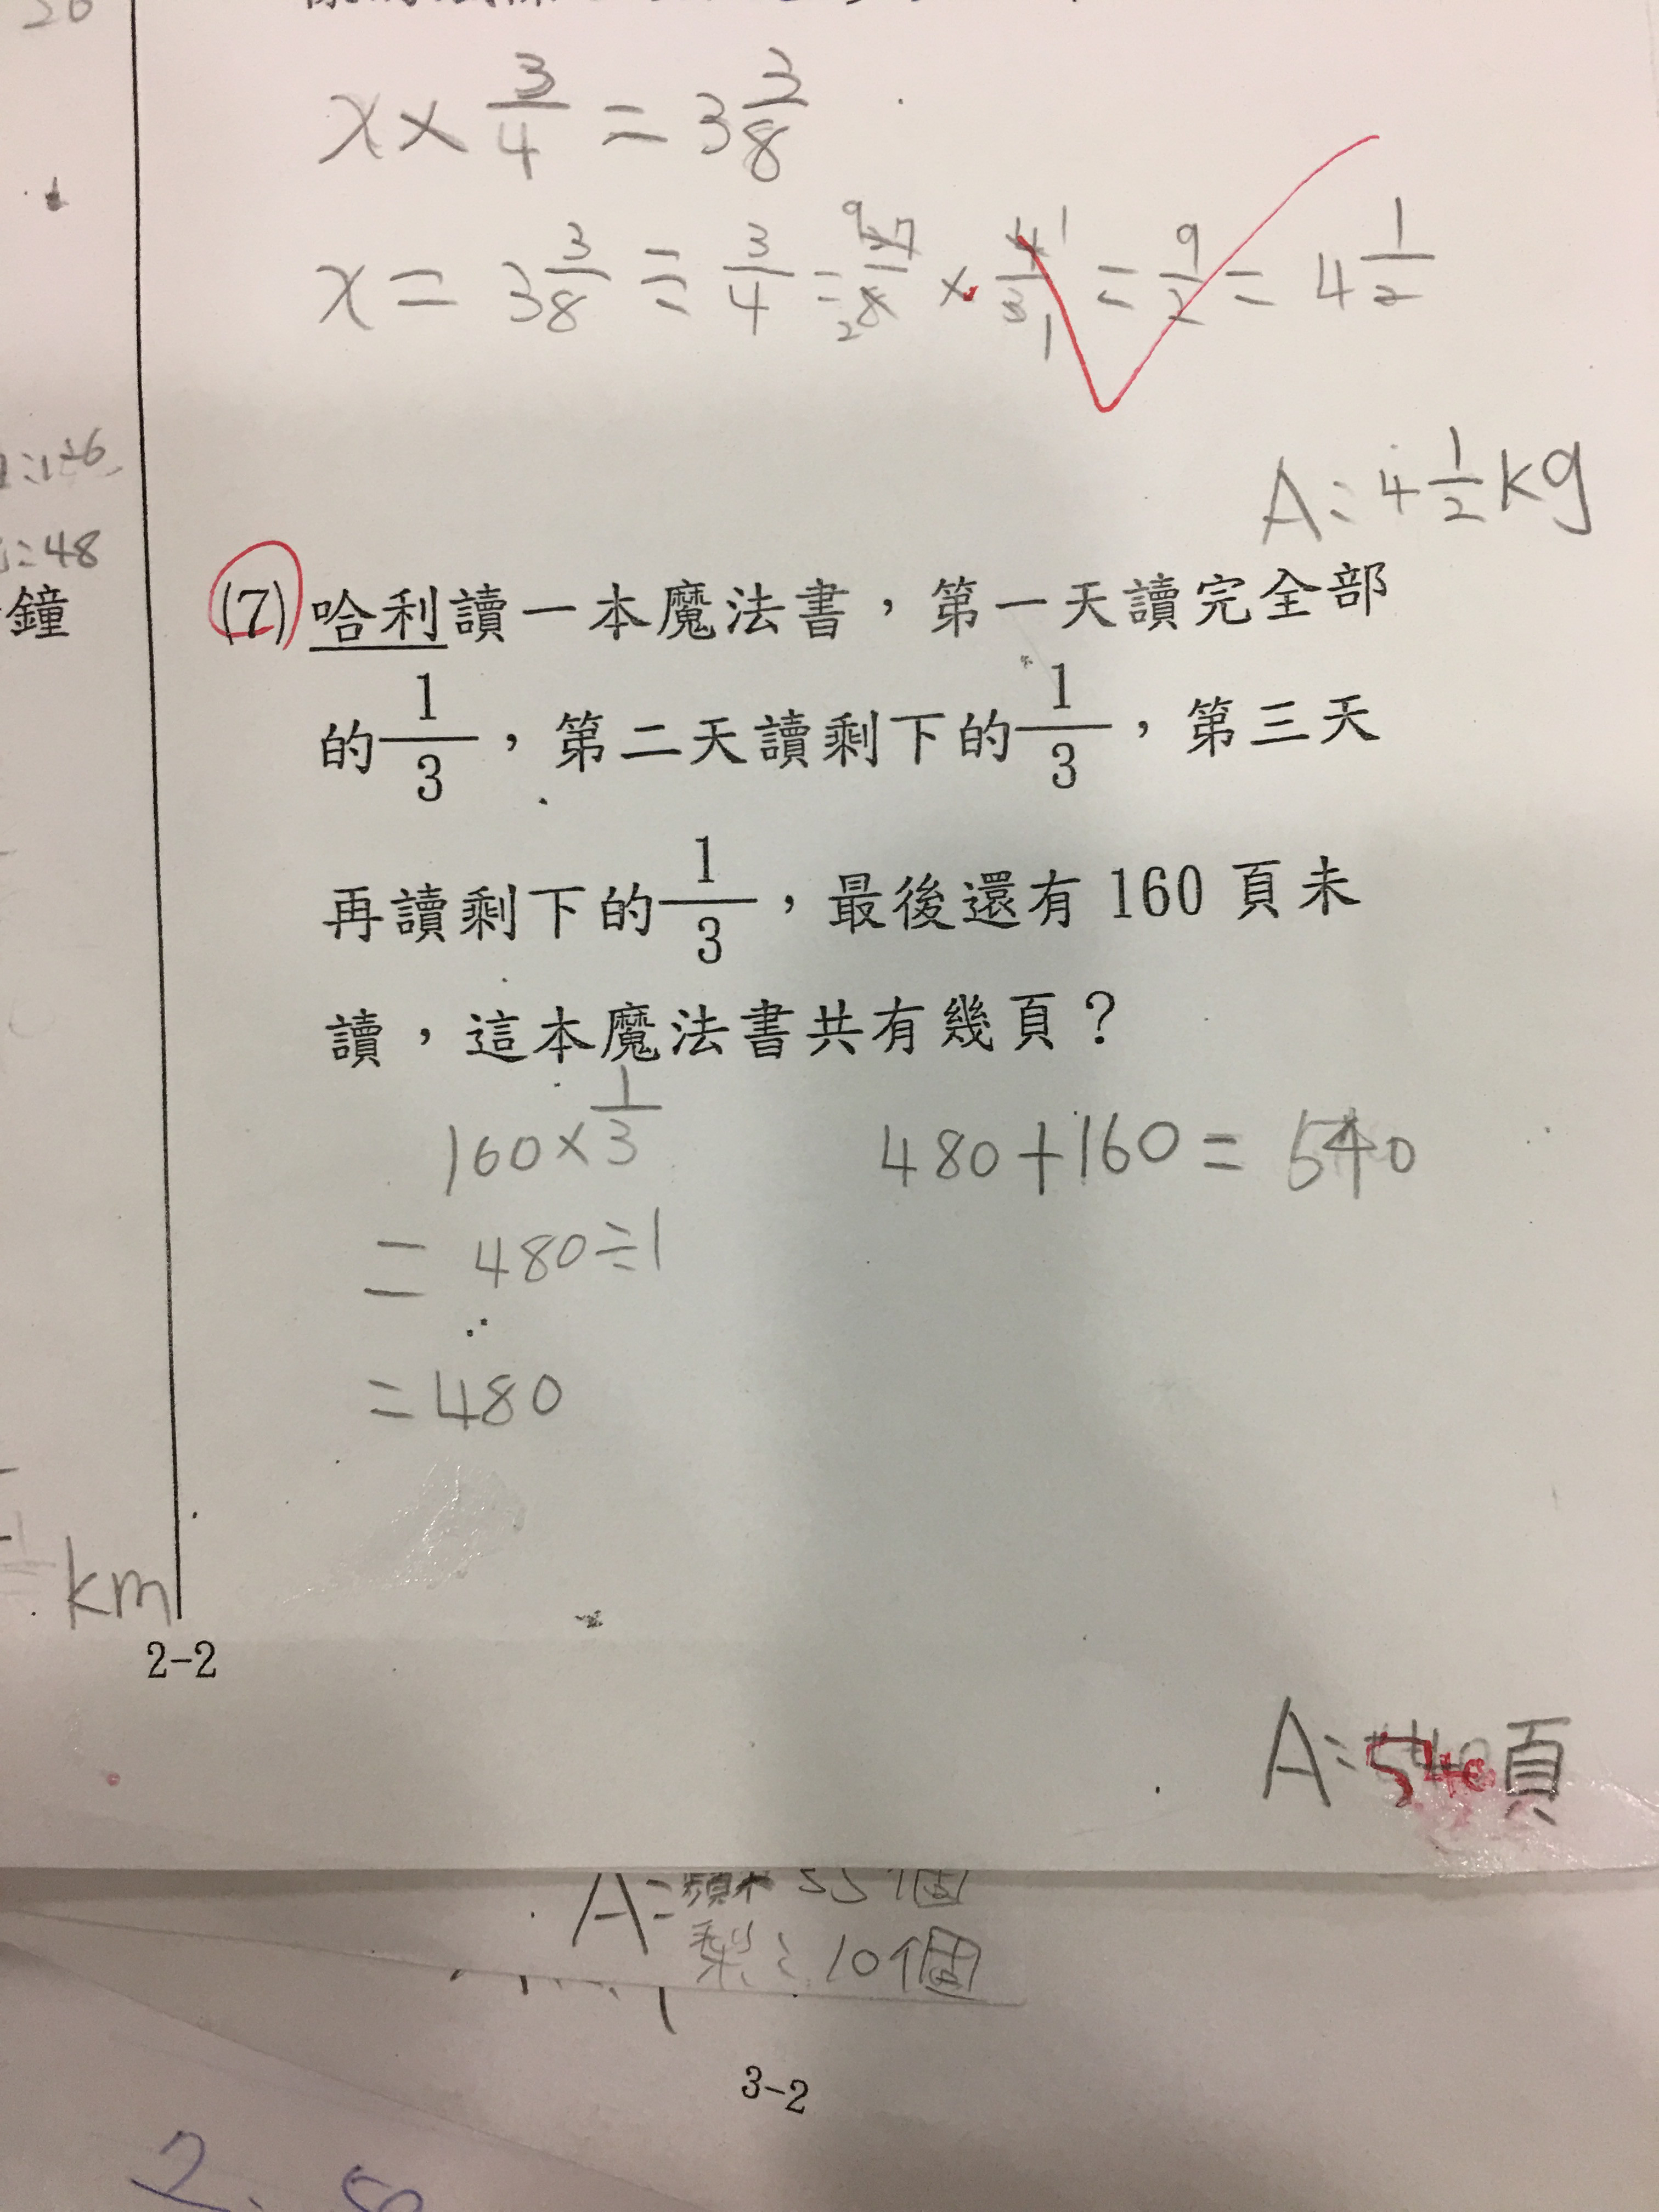 20
x × 3/4 = 3 3/8
x = 3 3/8 ÷ 3/4 = 27/8 × 4/3 = 9/2 = 4 1/2
9 1
2 1
A: 4 1/2 kg
=48
鐘
(7) 哈利讀一本魔法書，第一天讀完全部
的1/3，第二天讀剩下的1/3，第三天
再讀剩下的1/3，最後還有 160 頁未
讀，這本魔法書共有幾頁？
160 × 1/3
= 480 ÷ 1
= 480
480 + 160 = 540
km
2-2
A: 540 頁
A: 55個
梨: 10個
3-2
2.